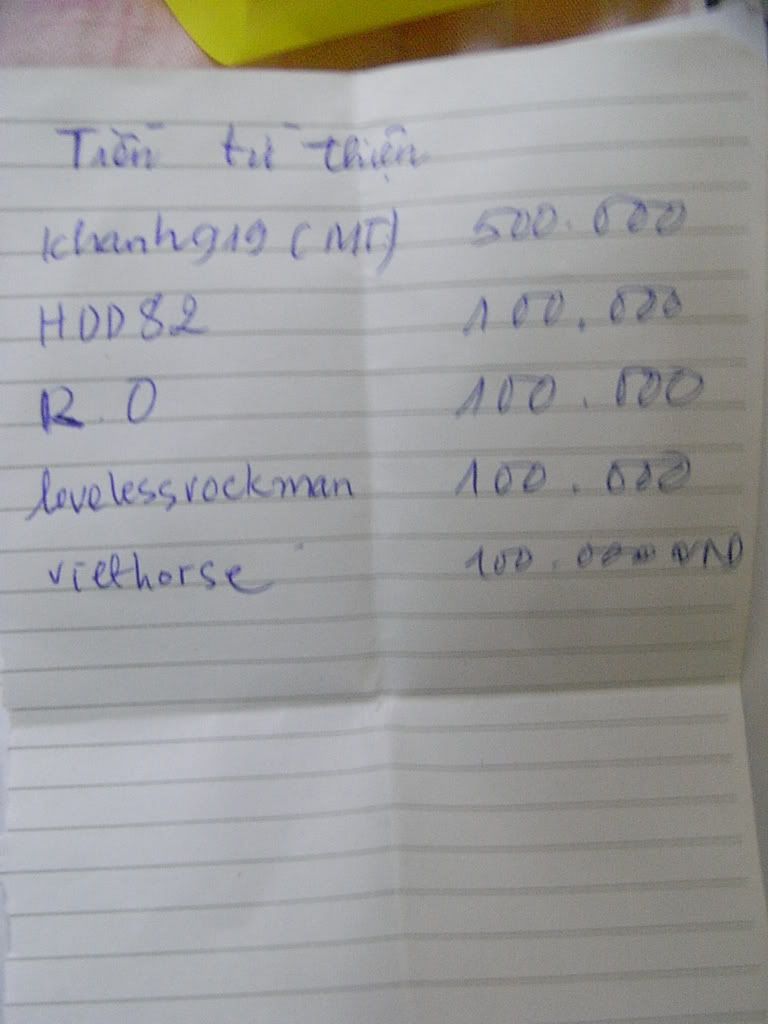 Tiền từ thiện
Khanh919 (MT) 500.000
HDD82 100.000
R.O 100.000
lovelessrockman 100.000
viethorse 100.000 VND